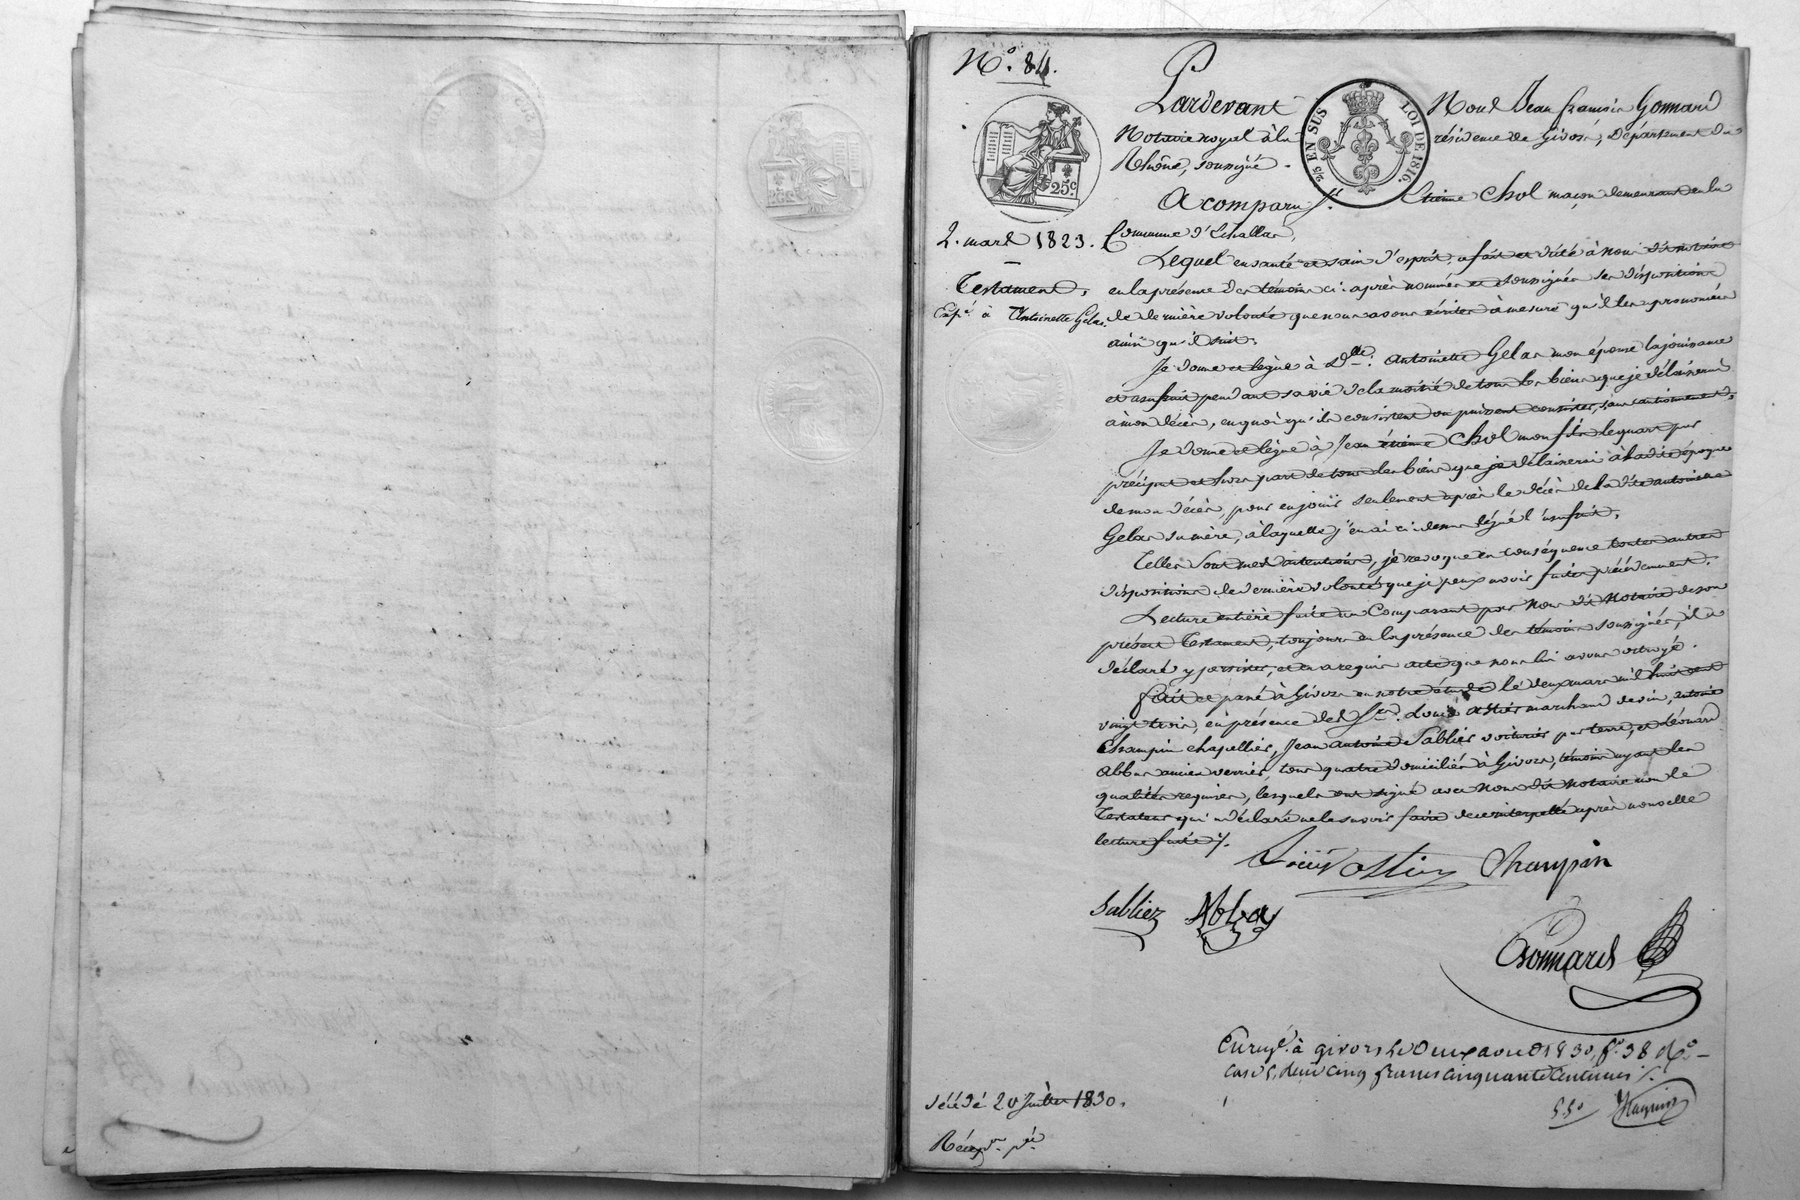 N.° 84.
Pardevant Nous Jean François Gonnard
Notaire royal à la résidence de Givors, Département du
Rhône, soussigné.
25 EN SUS LOI DE 1816.
25 c.
A comparu Sr. Etienne Chol maçon demeurant en la
2. mars 1823. Commune d'Echallas,
Lequel en santé et sain d'esprit, a fait et dicté à nous dit notaire
Testament, en la présence des témoins ci-après nommés et soussignés ses dispositions
Expé. à Antoinette Gelas. de dernière volonté que nous avons écrites à mesure qu'il les a prononcées
ainsi qu'il suit:
Je donne et lègue à Dlle. Antoinette Gelas mon épouse la jouissance
et usufruit pendant sa vie de la moitié de tous les biens que je délaisserai
à mon décès, en quoi qu'ils consistent ou puissent consister, sans cautionnement.
Je donne et lègue à Jean étienne Chol mon fils le quart par
préciput et hors part de tous les biens que je délaisserai à la dite époque
de mon décès, pour en jouir seulement après le décès de la dite antoinette
Gelas sa mère, à laquelle j'en ai ci-dessus légué l'usufruit.
Telles sont mes intentions, je révoque en conséquence toutes autres
dispositions de dernière volonté que je peux avoir faites précédemment.
Lecture entière faite au Comparant par nous dit Notaire de son
présent Testament, toujours en la présence des témoins soussignés, il a
déclaré y persister, et en a requis acte que nous lui avons octroyé.
fait et passé à Givors en notre étude le deux mars mil huit cent
vingt trois, en présence des Srs. Louis Astier marchand de vin, antoine
Champin chapellier, Jean antoine Sablier voiturier par terre, et léonard
Abbas ancien verrier, tous quatre domiciliés à Givors, témoins ayant les
qualités requises, lesquels ont signé avec nous dit notaire non le
Testateur qui a déclaré ne le savoir faire de ce interpellé après nouvelle
lecture faite ./.
Louis Astier Champin
Sablier Abba
Gonnard
Enregé. à givors le onze aout 1830, f° 38 R°
case 5, deux cinq francs cinquante centimes ./.
décédé 20 Juillet 1830. 5 50